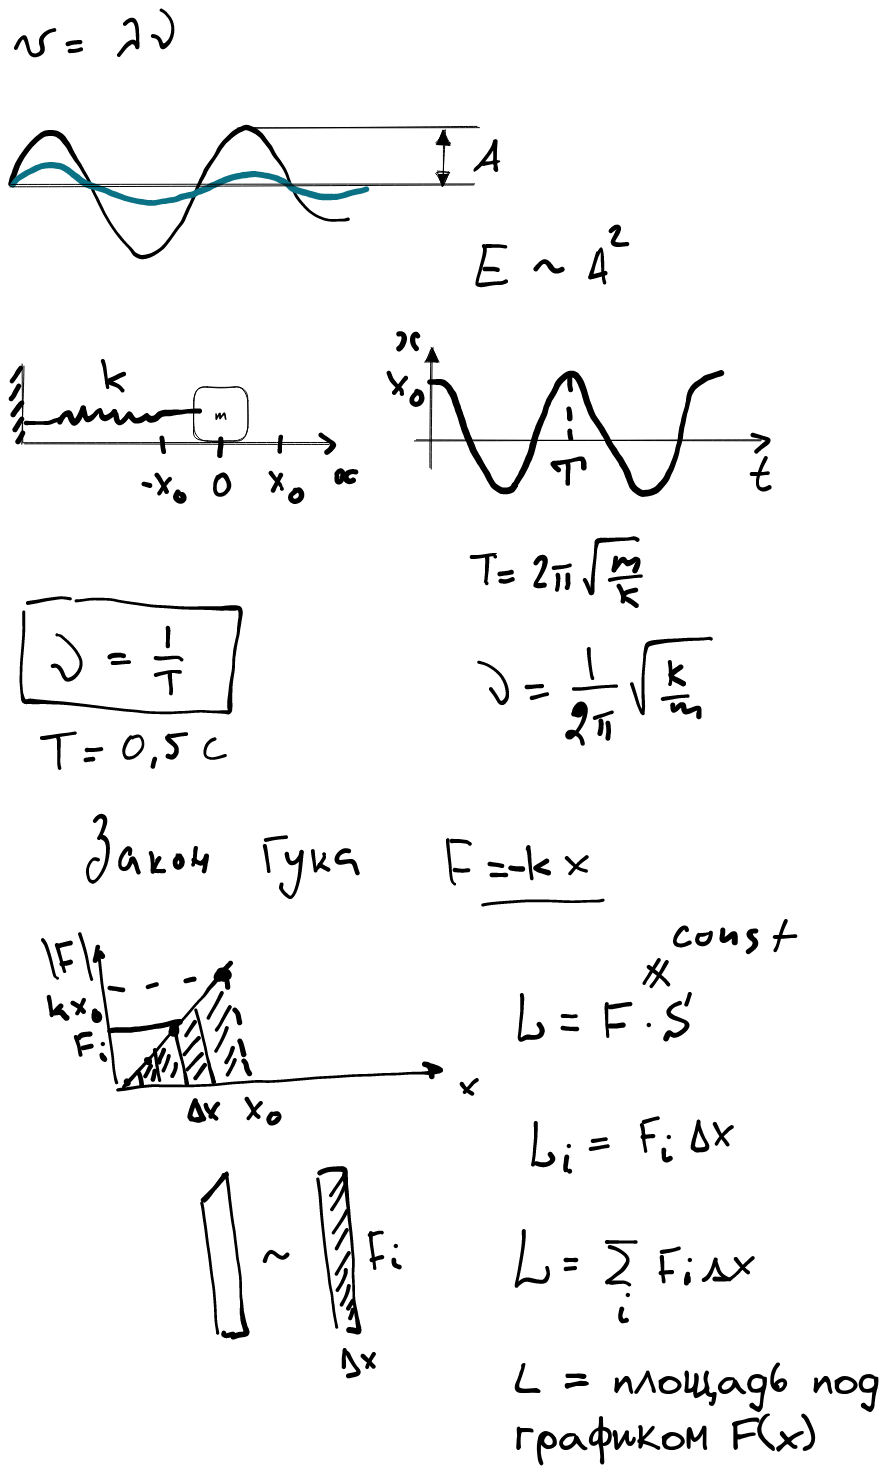 v = λν
A
E ~ A²
k
m
-x₀ 0 x₀ x
x
x₀
T
t
T = 2π√(m/k)
ν = 1/T
ν = 1/2π √(k/m)
T = 0,5 с
Закон Гука F = -kx
|F|
kx₀
Fᵢ
Δx x₀ x
const
L = F · S
Lᵢ = Fᵢ Δx
~ Fᵢ
Δx
L = Σᵢ Fᵢ Δx
L = площадь под
графиком F(x)